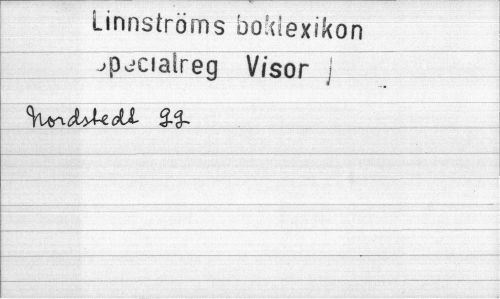 Linnströms boklexikon
Specialreg Visor
Nordstedt gg